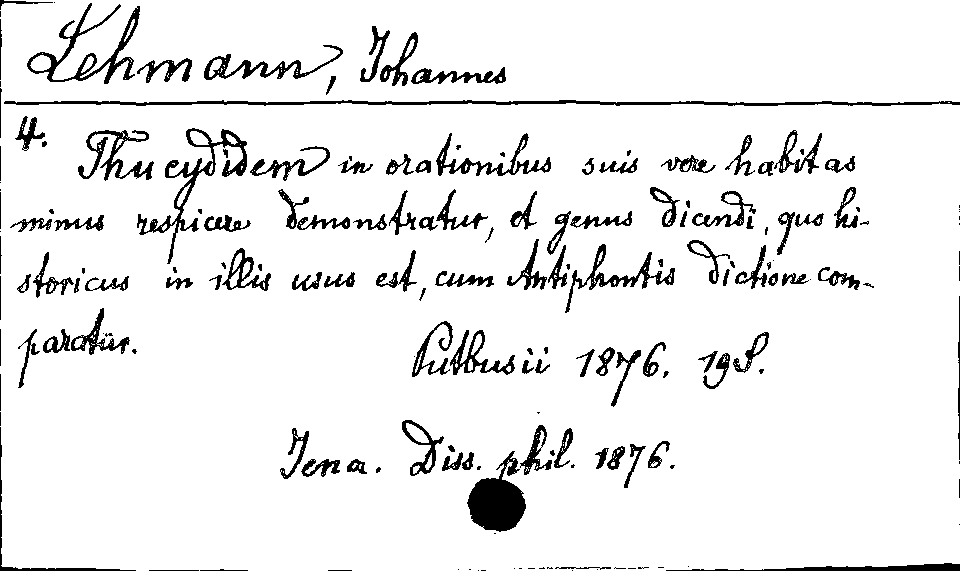 Lehmann, Johannes
4.
Thucydidem in orationibus suis vere habitas
minus respicere demonstratur, et genus dicendi, quo hi-
storicus in illis usus est, cum Antiphontis dictione com-
paratur.
Putbusii 1876. 19 S.
Jena. Diss. phil. 1876.